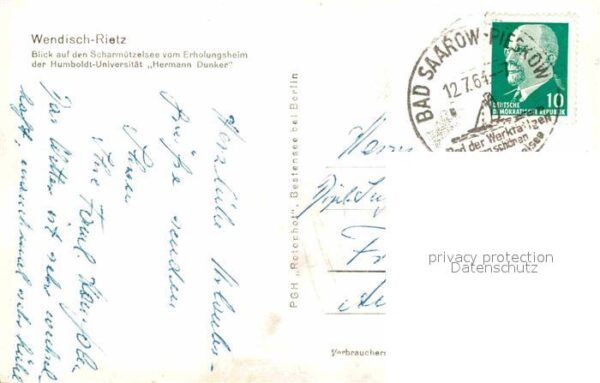 Wendisch-Rietz
Blick auf den Scharmützelsee vom Erholungsheim
der Humboldt-Universität „Hermann Dunker"
Herzliche Urlaubs-
Grüße senden
Ihnen
Ihre Faml.
Das Wetter ist sehr wechsel
haft, manchmal sehr kühl
PGH „Rotophot", Bestensee bei Berlin
BAD SAAROW-PIESKOW
12.7.64
Bad der Werktätigen
schönen
10
DEUTSCHE
DEMOKRATISCHE REPUBLIK
Dipl. Ing
Verbraucher
privacy protection
Datenschutz